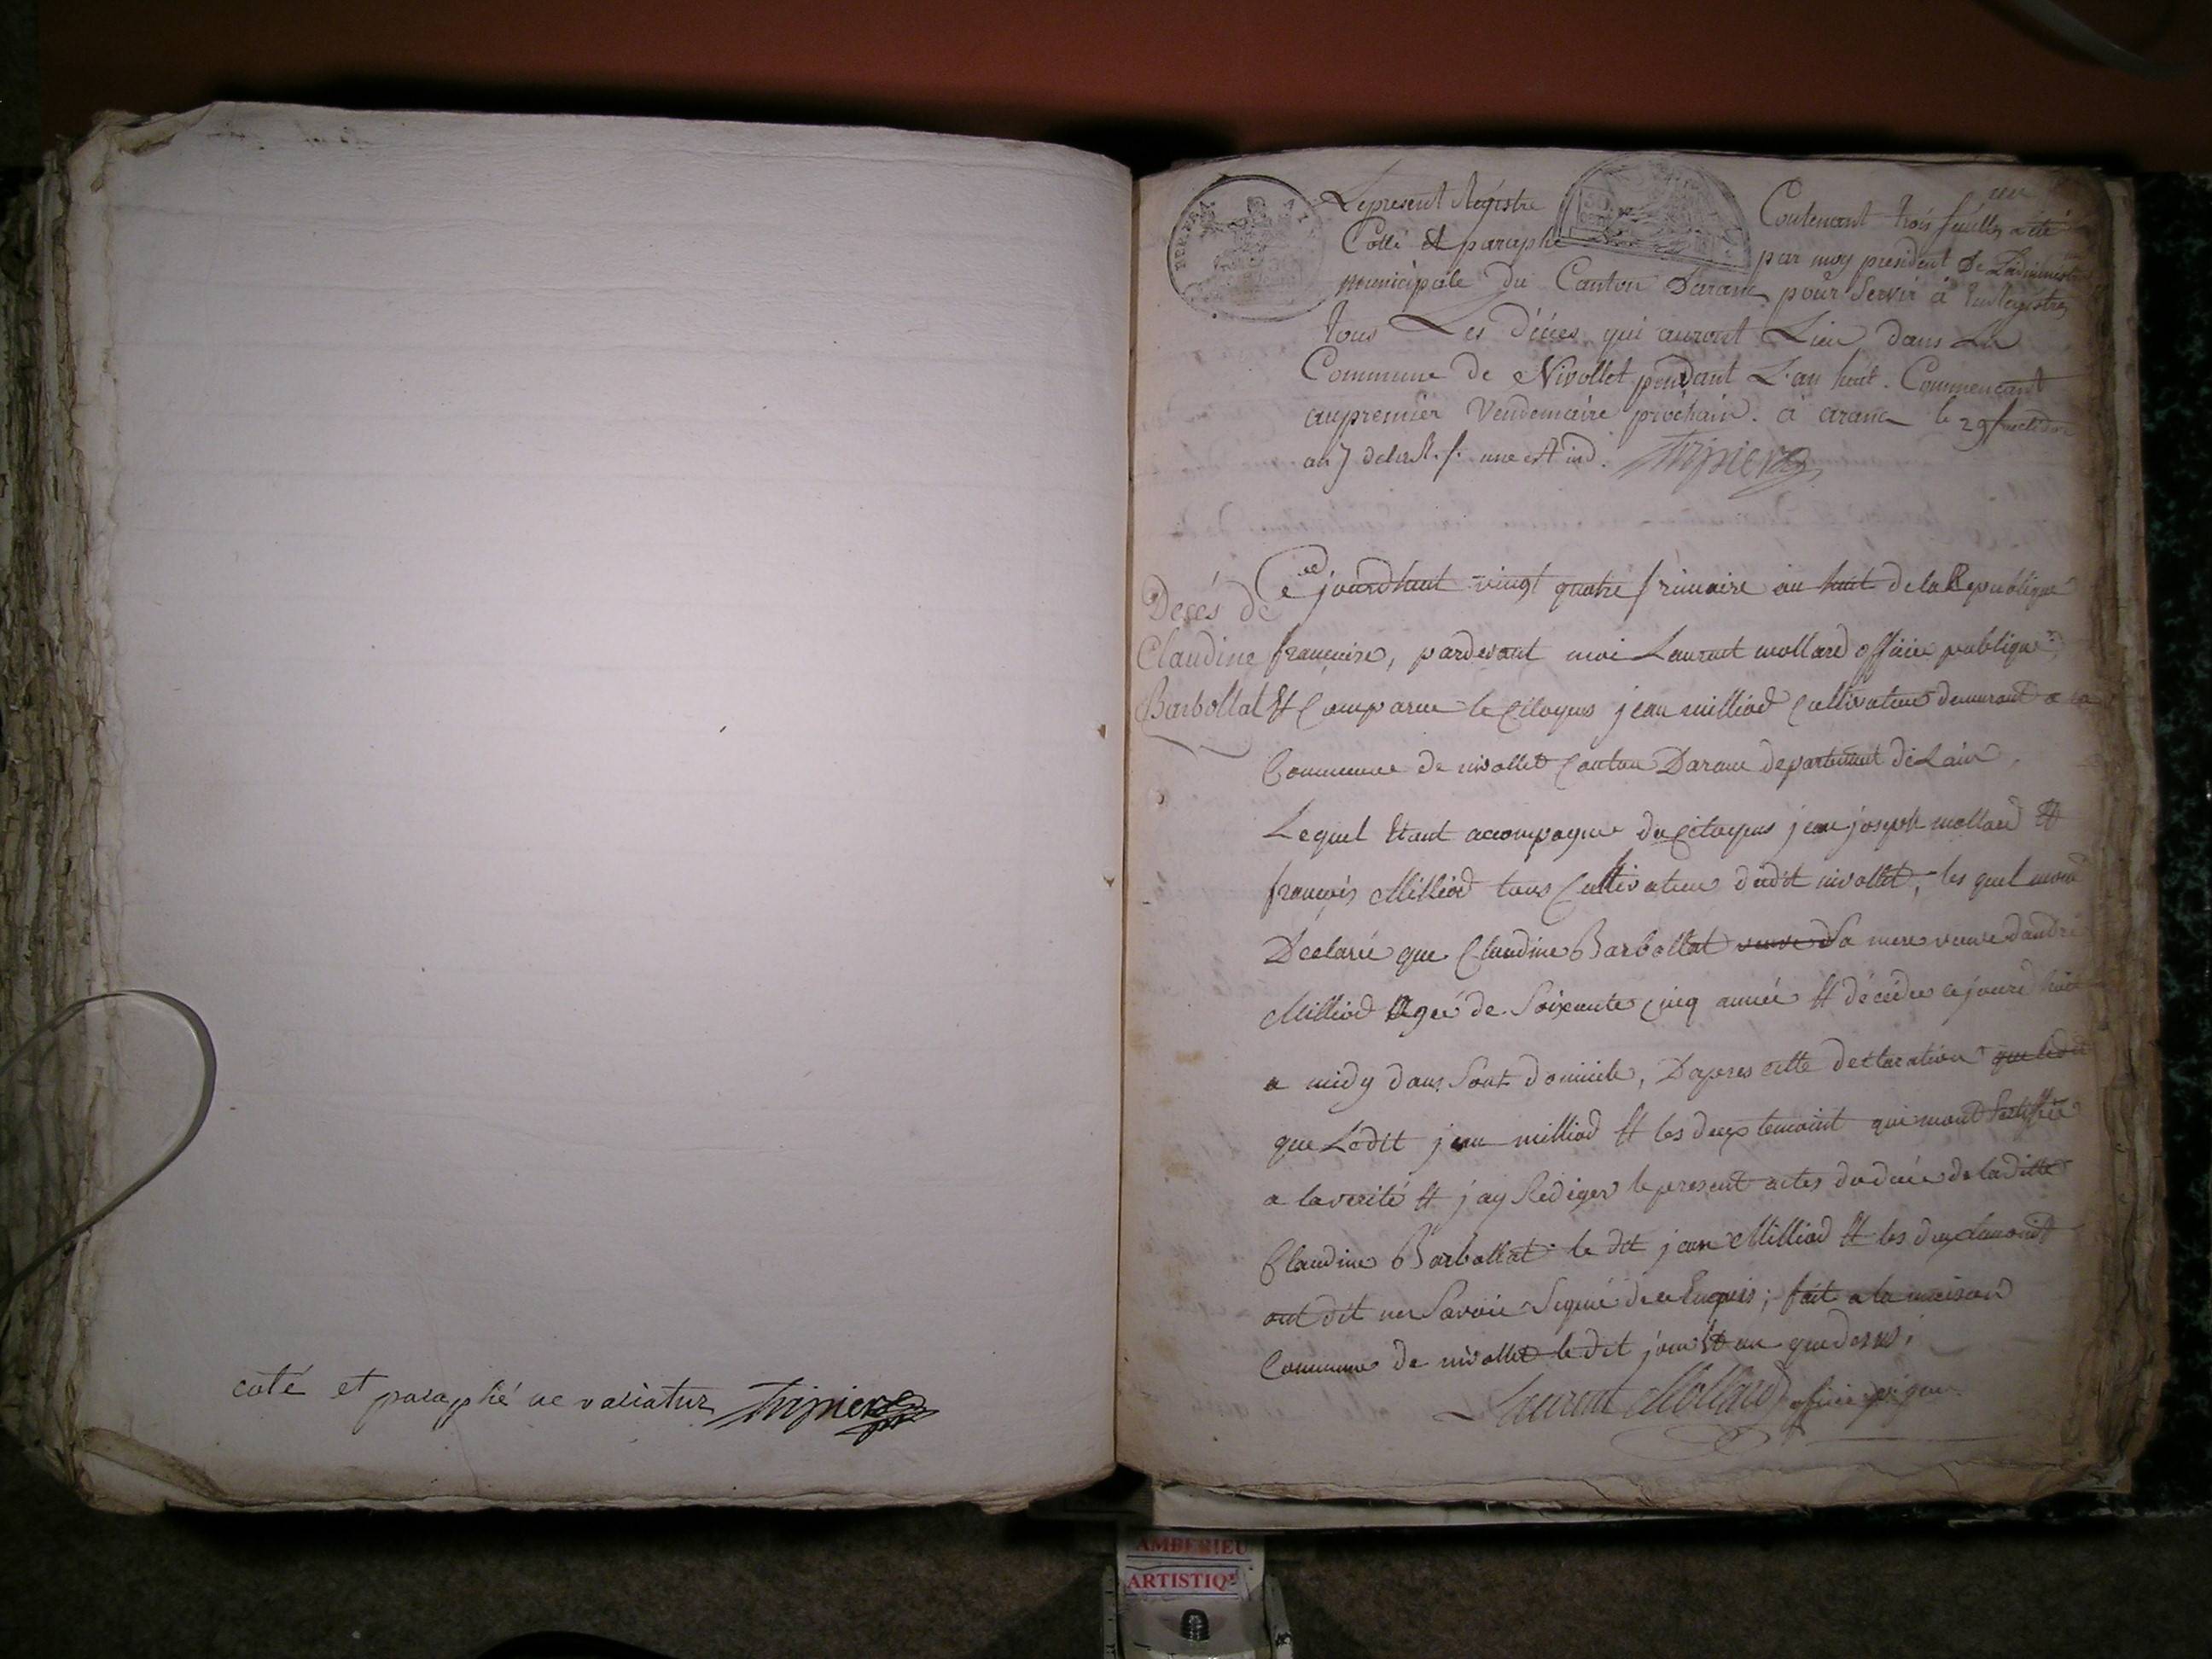 coté et paraphé ne variatur Tripier
REP. FRA.
Le present Registre Contenant trois feuilles a été
Cotté et paraphé par moy president De L'administ
municipale Du Canton D'aranc pour Servir à Enregistrer
tous Les décès qui auront Lieu dans La
Commune de Nivollet pendant L'an huit. Commencant
aupremier Vendemaire prochain. à aranc le 29 fructidor
an 7 de la R. f. une et ind. Tripier
Decés de
Claudine
Barbollat
Ce jourdhuit vingt quatre frimaire an huit de la Republique
francaise, pardevant moi Laurent mollard officié publique
Et Comparue le Citoyens jean milliod Cultivateur demurant a la
Commune de nivollet Canton Daranc departement de Lain
Lequel Etant accompagne du Citoyens jean joseph mollard Et
francois Milliod tous Cultivateur dudit nivollet, les quel mont
Declarée que Claudine Barbollat veuve d Sa mere veuve dandré
Milliod Agée de Soixante Cinq année Et décédée ce jourd huit
a midy dans Sont domicile, Dapres cette declaration que ledit
que Ledit jean milliod Et les deux temoint qui mont Certiffié
a la verité Et jay Rediger le present actes du décée de la ditte
Claudine Barbollat le dit jean Milliod Et les deux temoint
ont dit ne Savoir Signé de ce Enquis; fait a la maison
Commune de nivollet le dit jour Et an que desus;
Laurent Mollard officié
AMBERIEU
ARTISTIQ